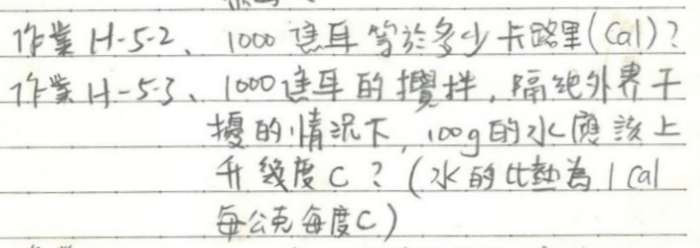 作業 H-5-2、 1000 達耳 等於多少 卡路里(Cal)?
作業 H-5-3、 1000達耳的攪拌，隔絕外界干
擾的情況下，100g的水應該上
升幾度C？(水的比熱為1Cal
每公克每度C)